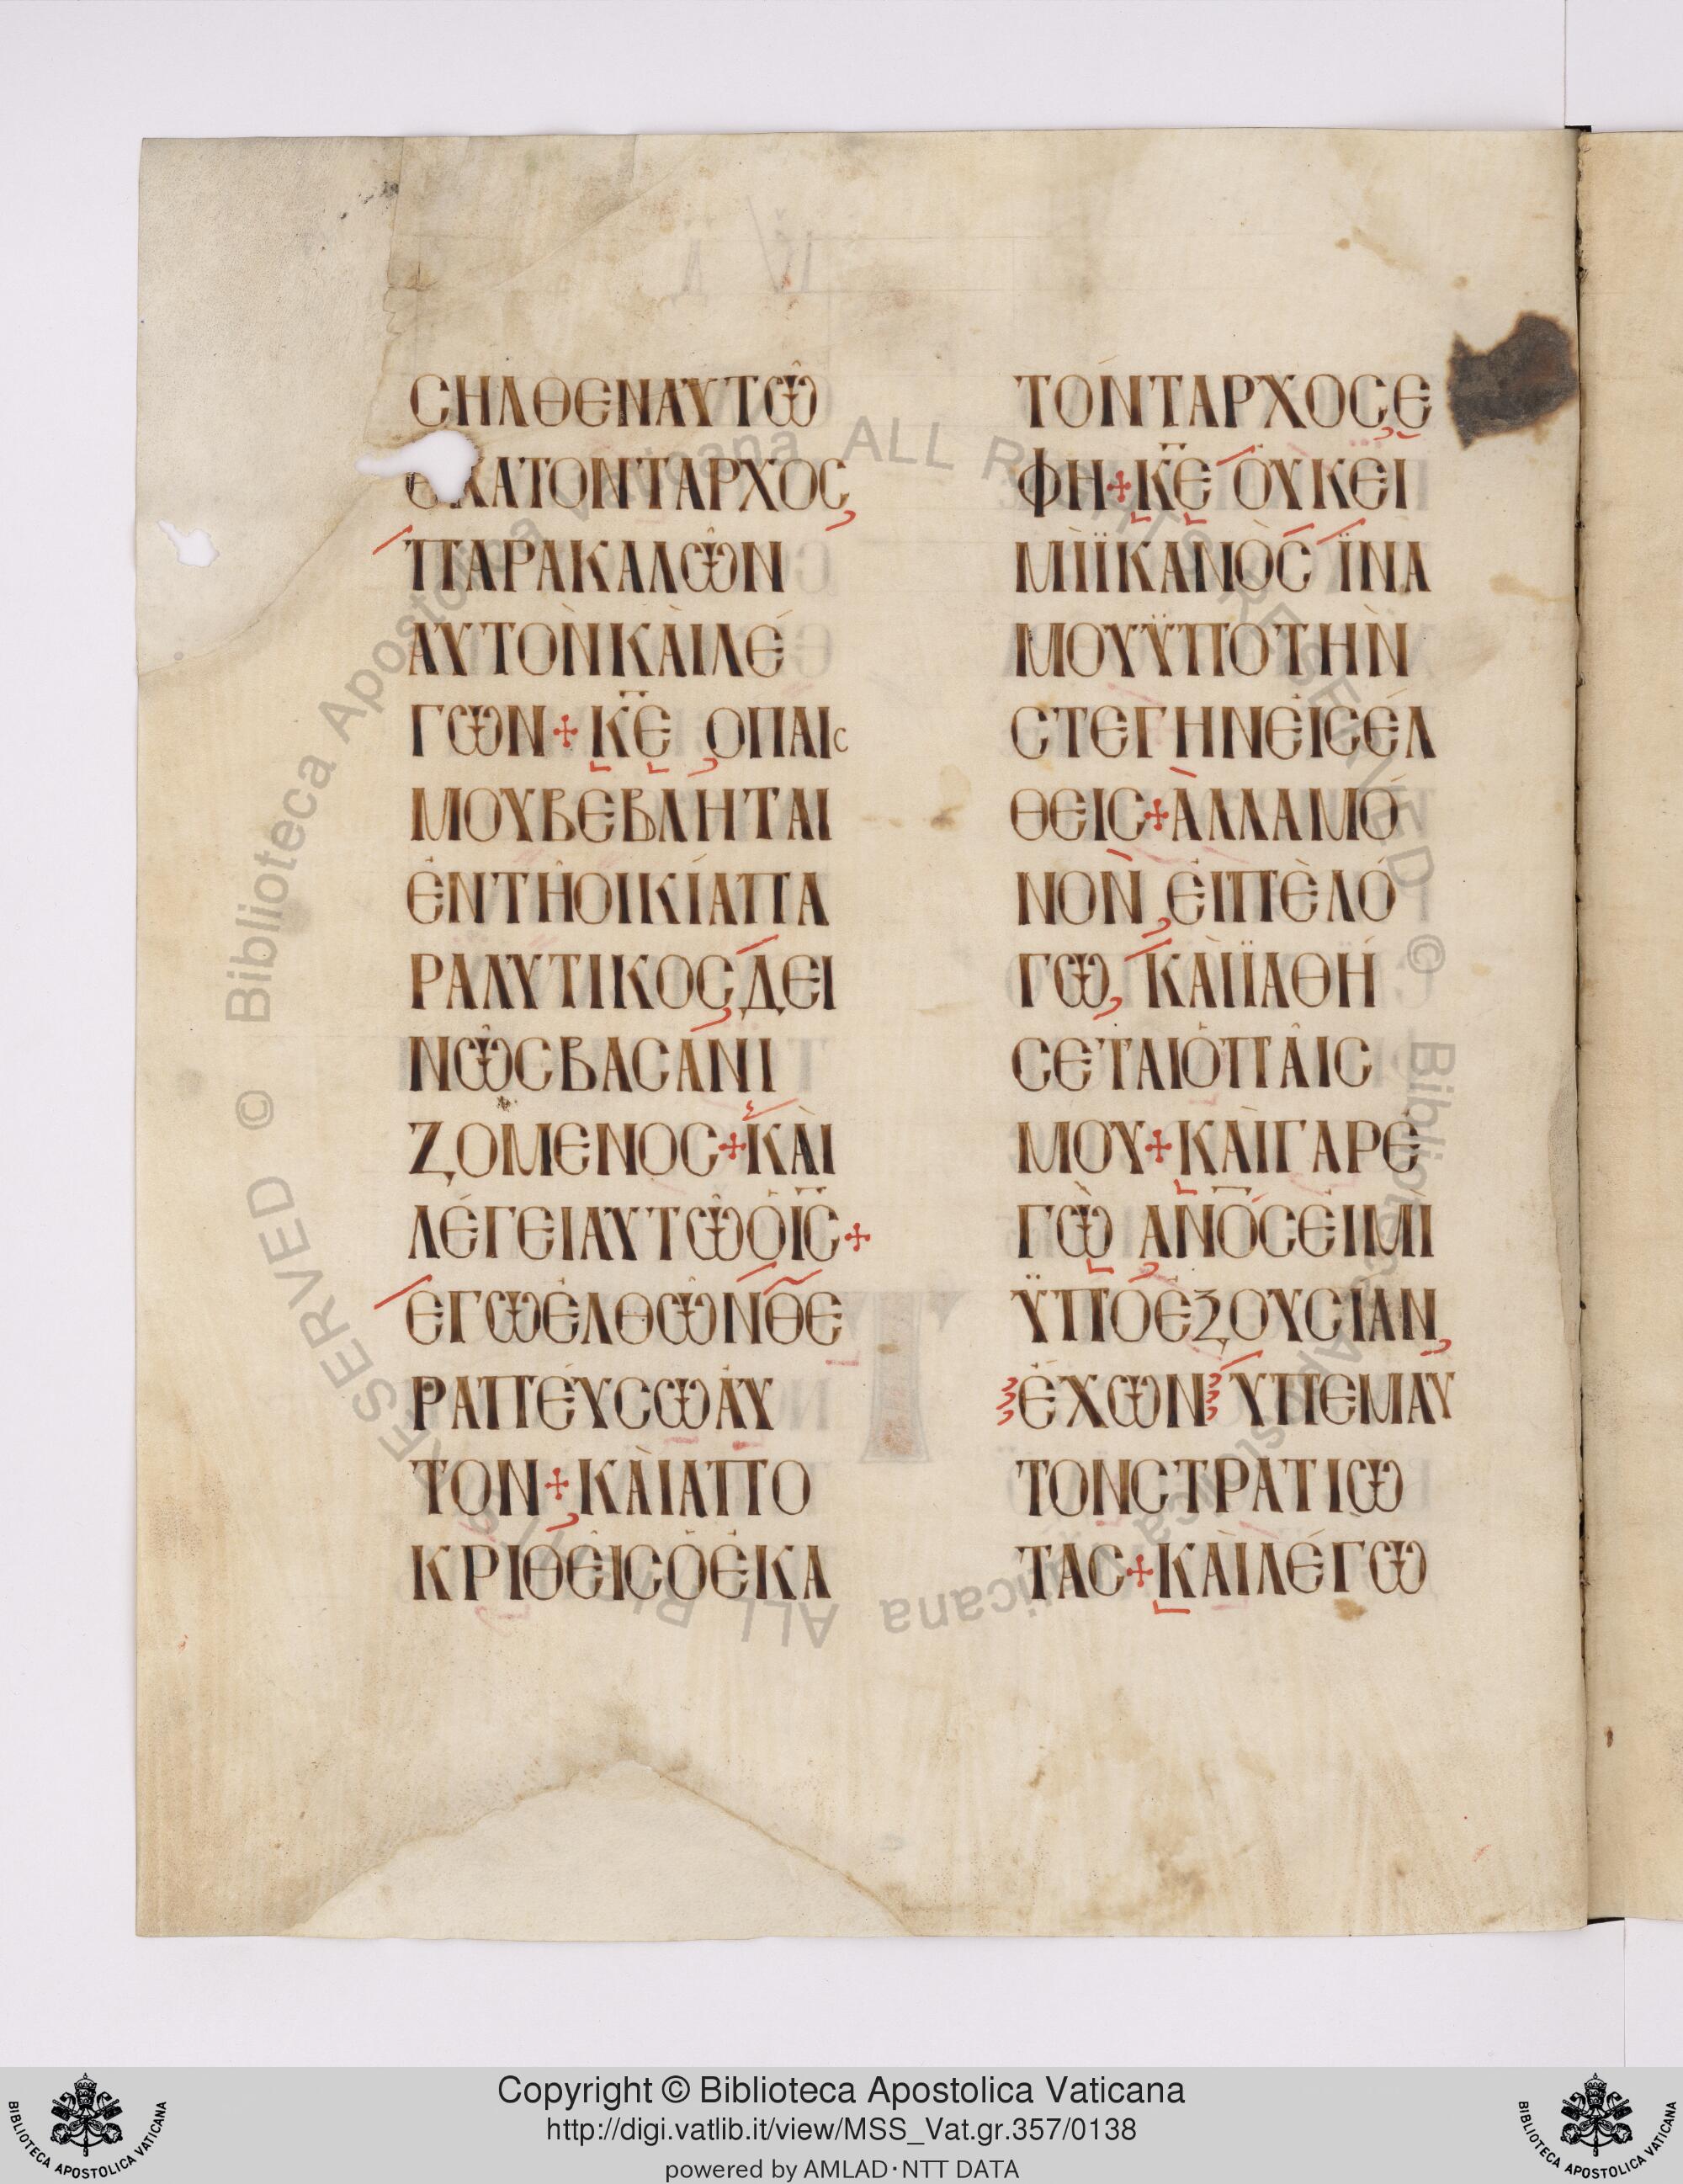 CΗΛΘΕΝΑΥΤΩ͂
ΕΚΑΤΟΝΤΑΡΧΟC
ΠΑΡΑΚΑΛΩ͂Ν
ΑΥΤῸΝΚᾺΙΛΈ
ΓΩΝ+Κ̅Ε̅ ΟΠΑΙC
ΜΟΥΒΕΒΛΗΤΑΙ
ἘΝΤΗ͂ΟΙΚΊΑΠΑ
ΡΑΛΥΤΙΚΟCΔΕΙ
ΝΩ͂CΒΑCΑΝΙ
ΖΟΜΕΝΟC+ΚᾺΙ
ΛΈΓΕΙΑΥΤΩ͂ὉΙ̅C̅+
ΕΓΩἘΛΘῺΝΘΕ
ΡΑΠΕΎCΩΑΥ
ΤΟΝ+ΚᾺΙΑΠΟ
ΚΡΙΘΕΙCὉἙΚΑ
ΤΟΝΤΑΡΧΟCΕ
ΦΗ+Κ̅Ε̅ ΟΥΚΕΙ
ΜῚΪΚΑΝῸC ΪΝΑ
ΜΟΥΫΠΟΤῊΝ
CΤΕΓΗΝΕΙCΈΛ
ΘΕΙC+ἈΛΛΑΜΌ
ΝΟΝ ἘΙΠῈΛΌ
ΓΩ ΚᾺΙΪΑΘΉ
CΕΤΑΙὉΠΑ͂ΙC
ΜΟΥ+ΚᾺΙΓΑΡΕ
ΓῺ Α̅Ν̅Ο̅CἘΙΜΙ
ΫΠΟἘΞΟΥCΙΑΝ
ἘΧΩΝ ΥΠΕΜΑΥ
ΤΟΝCΤΡΑΤΙΩ
ΤΑC+ΚᾺΙΛΈΓΩ
© Biblioteca Apostolica Vaticana ALL RIGHTS RESERVED © Biblioteca Apostolica Vaticana ALL RIGHTS RESERVED
Copyright © Biblioteca Apostolica Vaticana
http://digi.vatlib.it/view/MSS_Vat.gr.357/0138
powered by AMLAD·NTT DATA
BIBLIOTECA APOSTOLICA VATICANA
BIBLIOTECA APOSTOLICA VATICANA